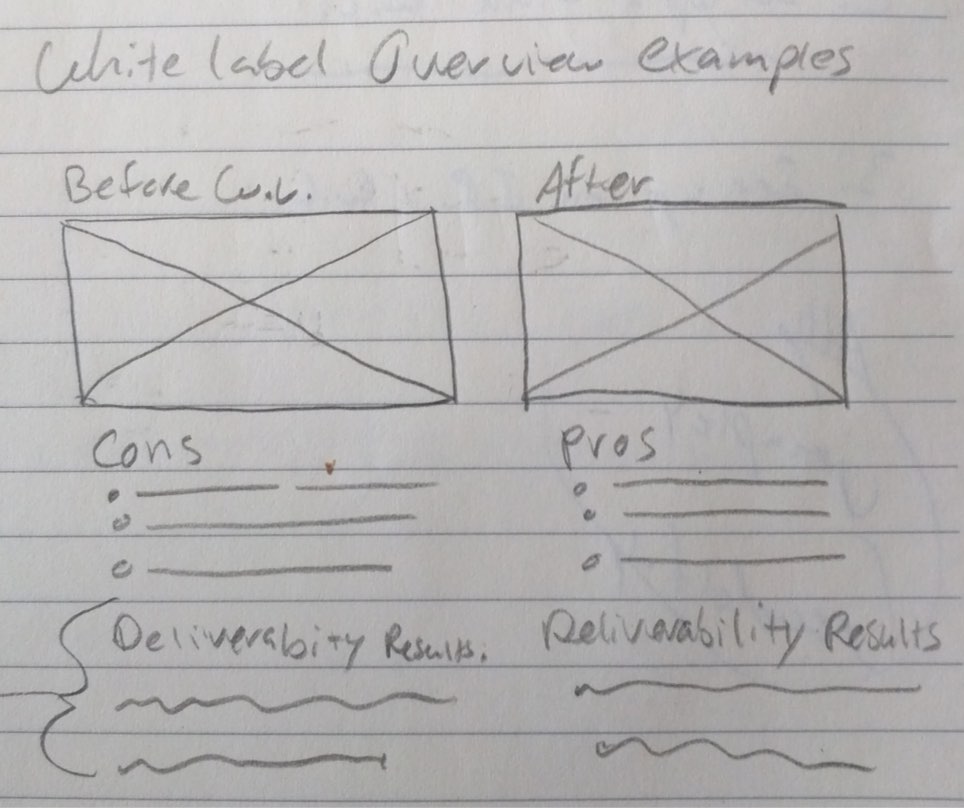 White label Overview examples
Before W.L.
After
Cons
Pros
Deliverabity Results.
Deliverability Results